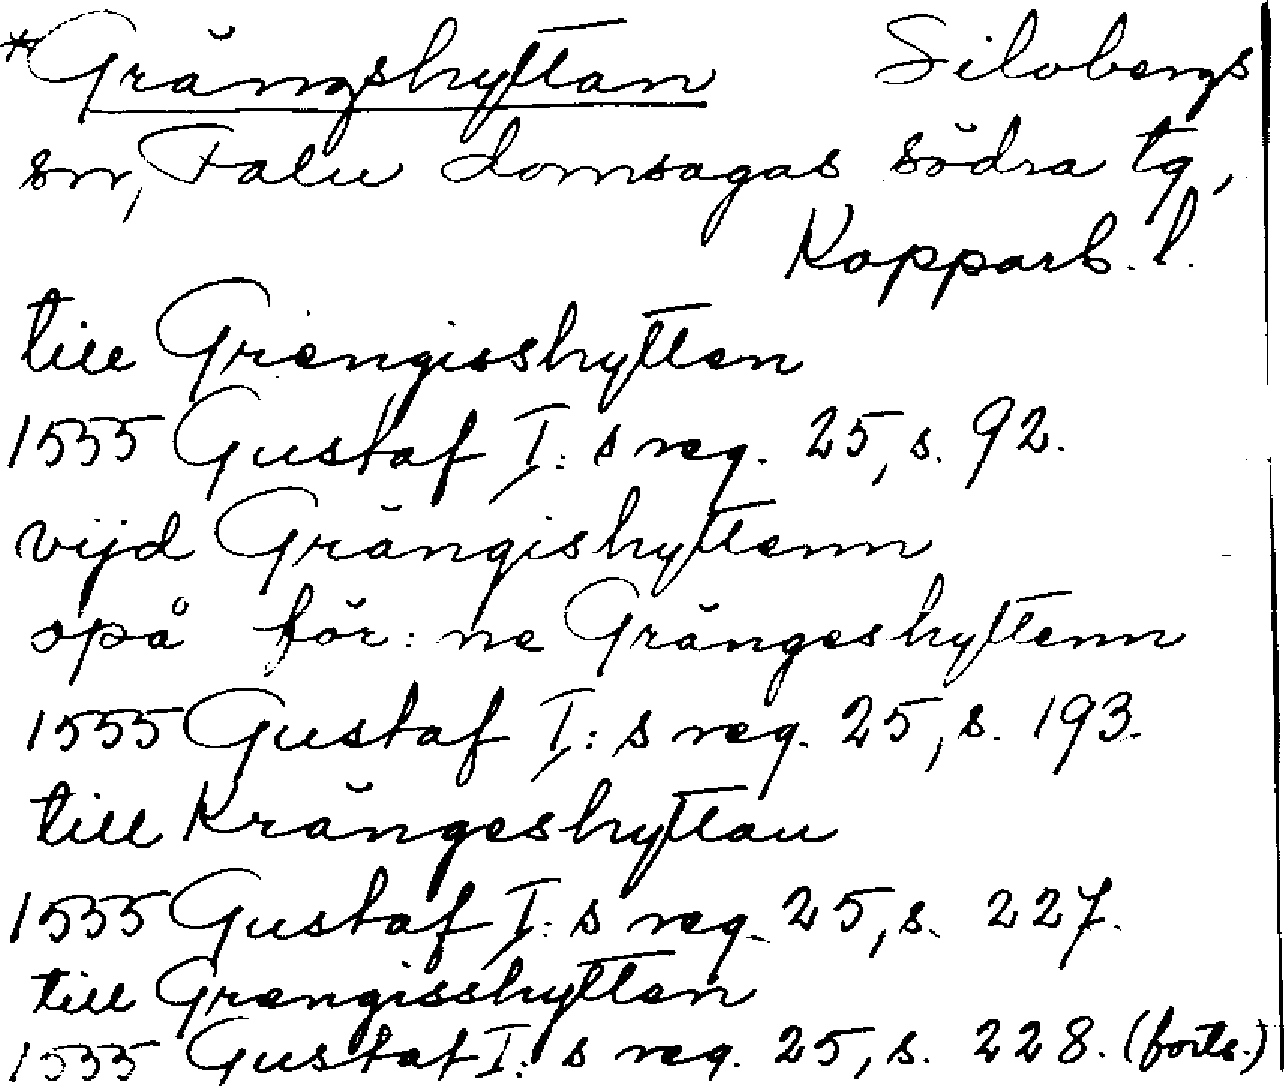 *Grängshyttan Silvbergs
sn, Falu domsagas södra tg,
Kopparb. l.
till Grængisshytten
1555 Gustaf I:s reg. 25, s. 92.
vijd Grängishyttenn
opå för:ne Grängeshyttenn
1555 Gustaf I:s reg. 25, s. 193.
till Krängeshyttan
1555 Gustaf I:s reg. 25, s. 227.
till Grængisshytten
1555 Gustaf I:s reg. 25, s. 228. (forts.)